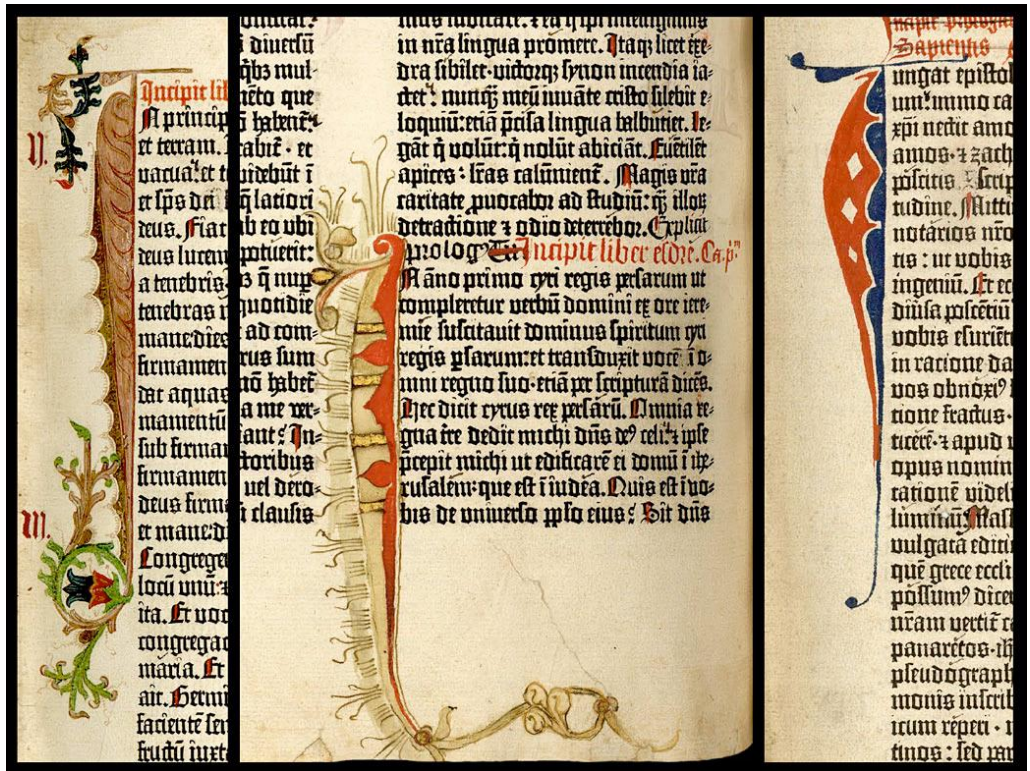 Incipit lib
N princip
et terram.
II.
vacua: et t
et sp̄s dei
deus. Fiat
deus lucem
a tenebris.
tenebras n
mane dies
firmamen
dat aquas
mamentū
sub firma
firmamen
deus firma
III.
et mane di
Congregē
locū unū ⁊
ita. Et voc
congregac
maria. Et
ait. Germi
facientē sem
fructū iuxt
i diuersū
q̄bz mul-
mēto que
ō habent:
rabit̄ · et
uidebūt ī
q̄ latiori
ab eo ubi
potuerit:
quotidie
ad com-
rus sum
nō habet
a me ver-
ant: In-
toribus
uel dero-
i clausis
in nr̄a lingua promere. Itaqz licet exe-
dra sibilet·victorqz synon incendia ia-
ctet: nunq̄z meū iuuāte cristo silebit e-
loquiū: etiā p̄cisa lingua balbutiet. Le-
gāt q̄ volūt: q̄ nolūt abiciāt. Euētilēt
apices: lr̄as calūnient̄. Magis vr̄a
caritate ꝓuocabor ad studiū: q̄z illoꝝ
detractione ⁊ odio deterrebor. Explicit
prologꝰ Incipit liber esdre. Ca. p̄m̄
N āno primo cyri regis persarum ut
compleretur verbū domini ex ore iere-
mie suscitauit dominus spiritum cyri
regis p̄sarum: et transduxit vocē ī o-
mni regno suo·etiā per scripturā dicēs.
Hec dicit cyrus rex persarū. Omnia re-
gna tr̄e dedit michi dn̄s deꝰ celi: ⁊ ipse
p̄cepit michi ut edificarē ei domū ī ihe-
rusalem: que est ī iudea. Quis est ī vo-
bis de vniuerso pp̄lo eius? Sit dn̄s
Sapientis
ungat epistol
um: immo ca
xp̄i nectit amo
amos·⁊ zach
poscitis
tudine. Mitti
notarios nr̄o
tis: ut vobis
ingeniū. Et ec
diūsa poscētiū
vobis esuriēt
in racione da
vos obnoxiꝰ
tione fractus·
ticerē·⁊ apud v
opus nomin
tationē videli
vulgata editi
quē grece eccli
possumꝰ dicer
nr̄am vertit ca
panaretos·ih
pseudograph
monis inscrib
icum reperi·
tinos: sed par